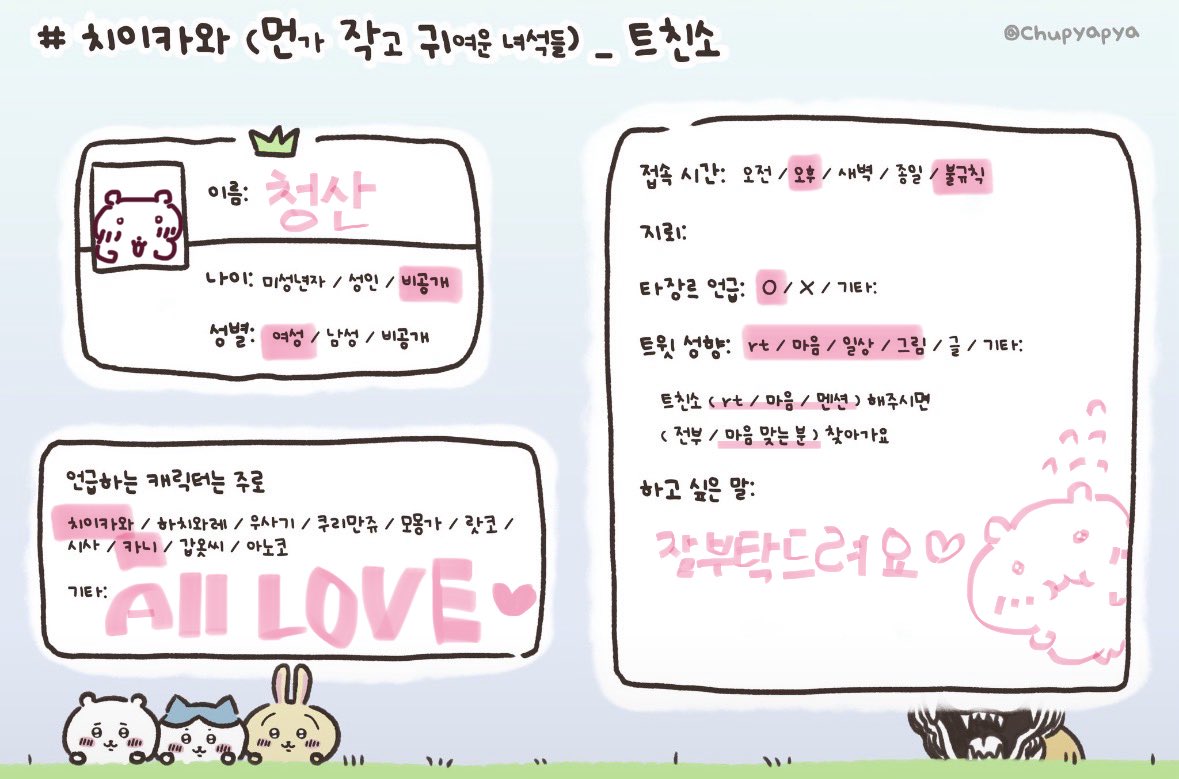 # 치이카와 (먼가 작고 귀여운 녀석들) _ 트친소
@Chupyapya
이름: 청산
나이: 미성년자 / 성인 / 비공개
성별: 여성 / 남성 / 비공개
언급하는 캐릭터는 주로
치이카와 / 하치와레 / 우사기 / 쿠리만쥬 / 모몽가 / 랏코 /
시사 / 카니 / 갑옷씨 / 아노코
기타: All LOVE
접속 시간: 오전 / 오후 / 새벽 / 종일 / 불규칙
지뢰:
타장르 언급: O / X / 기타:
트윗 성향: rt / 마음 / 일상 / 그림 / 글 / 기타:
트친소 ( rt / 마음 / 멘션 ) 해주시면
( 전부 / 마음 맞는 분 ) 찾아가요
하고 싶은 말:
잘부탁드려요♡